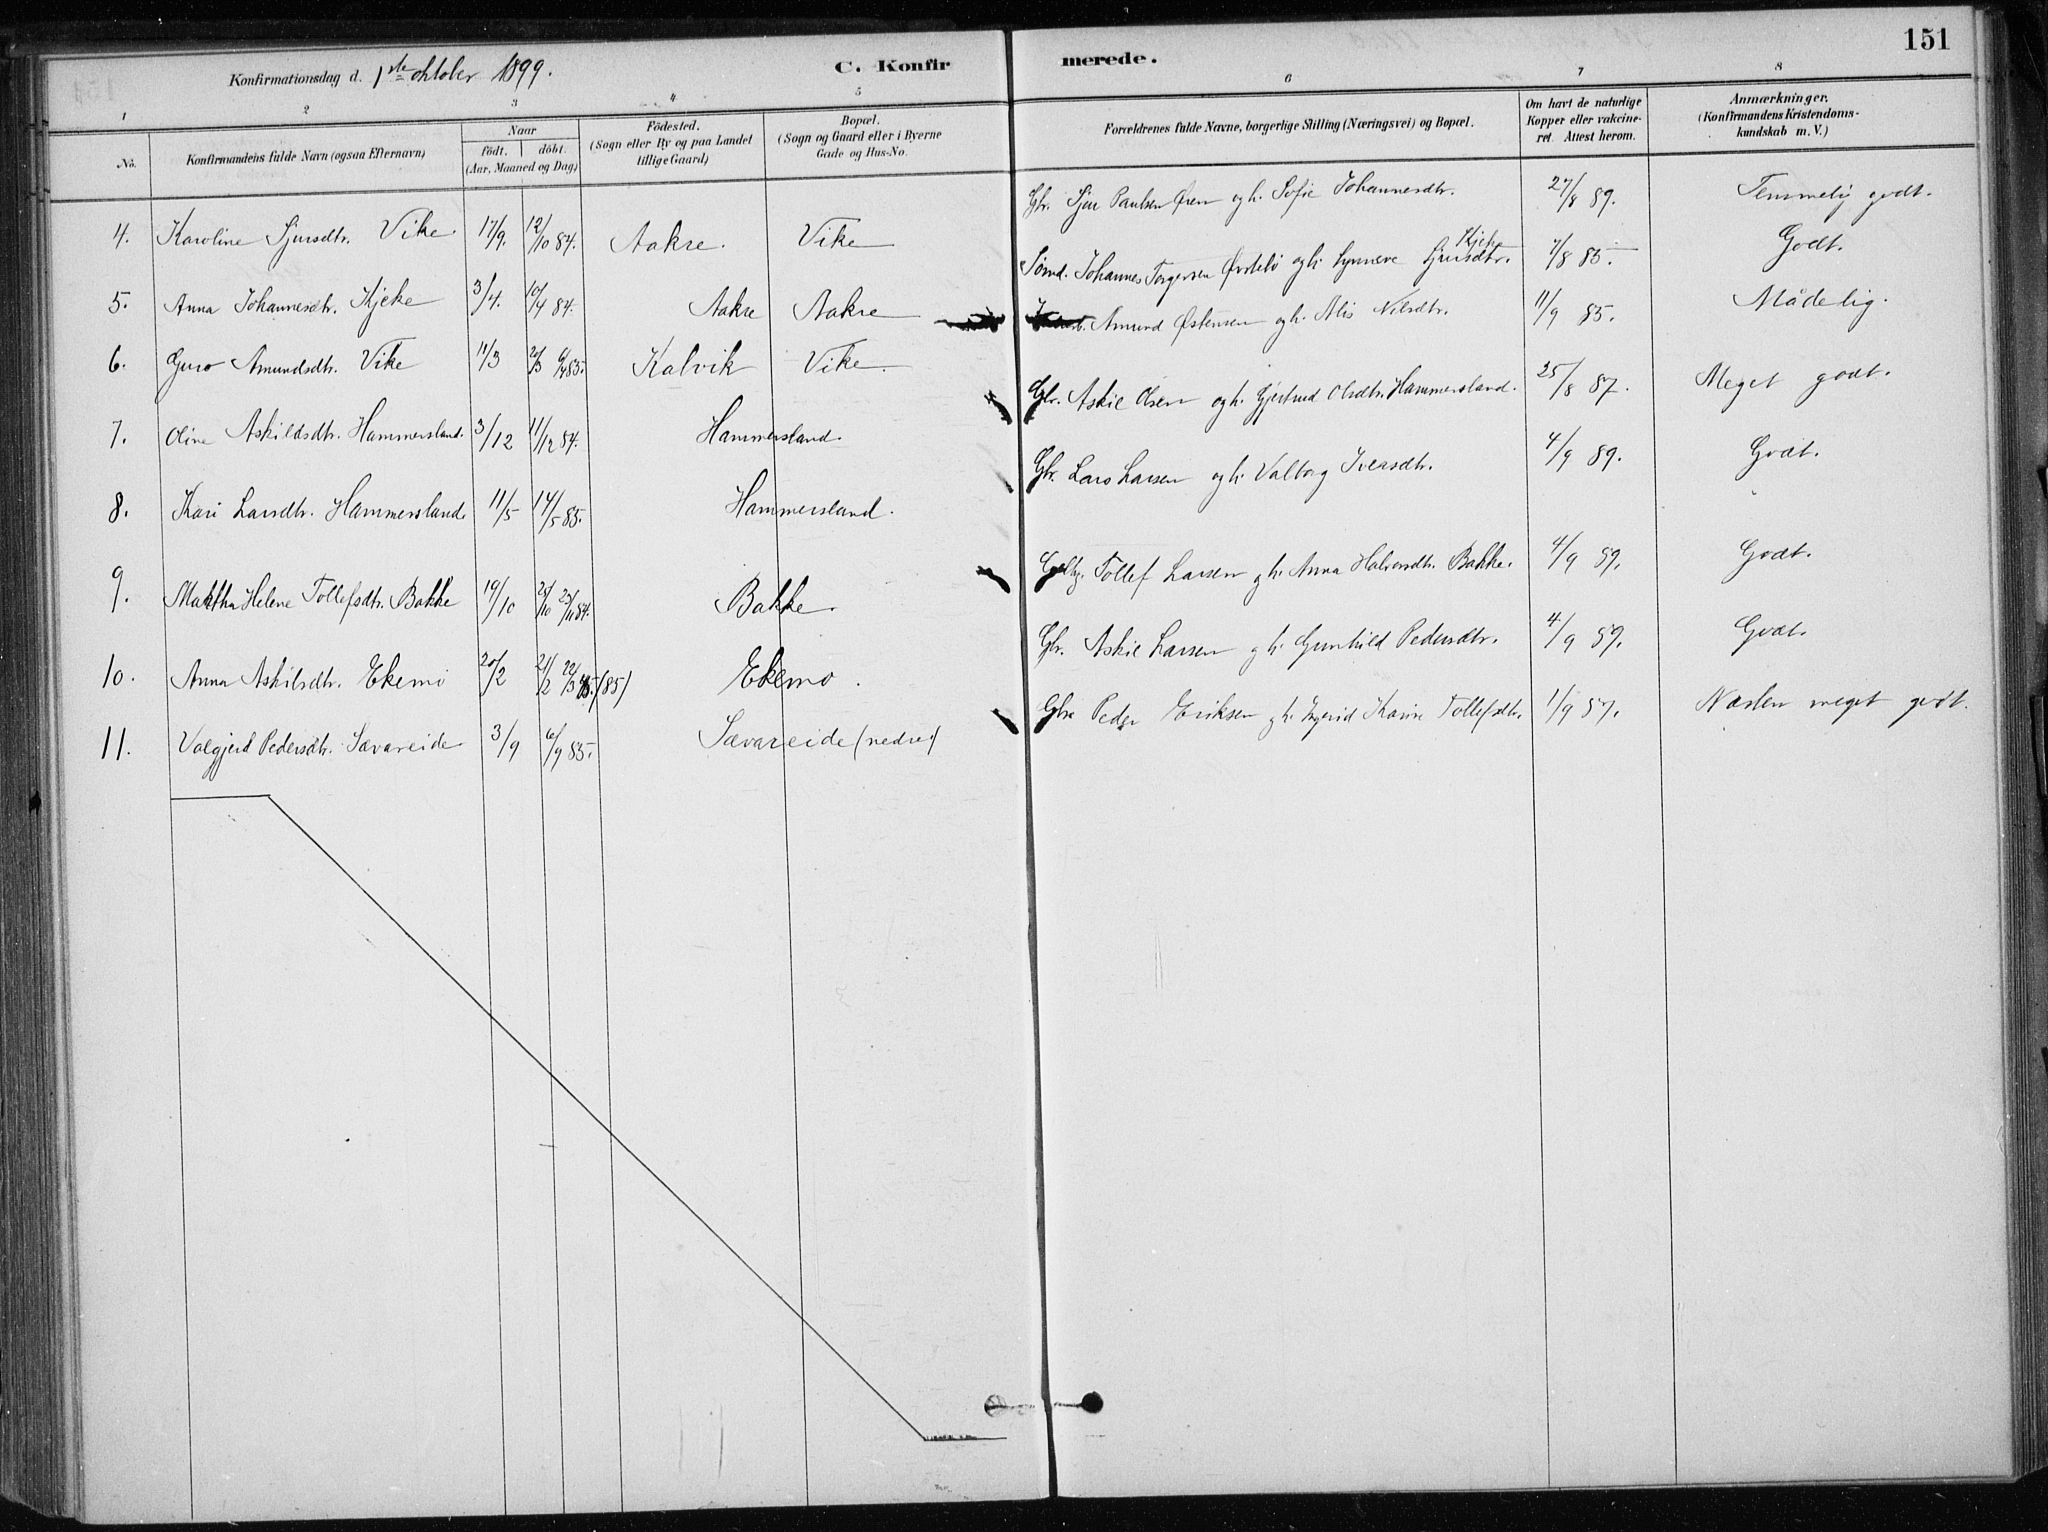 151
Konfirmationsdag d. 1ste oktober 1899. C. Konfirmerede.
1 2 3 4 5 6 7 8
No. Konfirmandens fulde Navn (ogsaa Efternavn) Naar födt. döbt. (Aar, Maaned og Dag) Födested. (Sogn eller By og paa Landet tillige Gaard) Bopæl. (Sogn og Gaard eller i Byerne Gade og Hus-No. Forældrenes fulde Navne, borgerlige Stilling (Næringsvei) og Bopæl. Om havt de naturlige Kopper eller vakcineret. Attest herom. Anmærkninger. (Konfirmandens Kristendomskundskab m. V.)
4. Karoline Sjursdtr. Vike. 17/9. 12/10 84. Aakre. Vike Gbr. Sjur Paulsen Øren og h. Sofie Johannesdtr. 27/8 89. Temmelig godt.
5. Anna Johannesdtr. Kjeke 3/4. 10/4 84. Aakre Aakre Sømd. Johannes Torgersen Øvstebø og h. Synneve Sjursdtr. Kjeke 7/8 85. Godt.
6. Guro Amundsdtr. Vike 11/3 20/3 6/4 85. Kalvik Vike. Amund Østensen og h. Alis Nilsdtr. 11/9 85. Mådelig.
7. Oline Askildsdtr. Hammersland. 3/12 11/12 84. Hammersland. Gbr. Askil Olsen og h. Gjertrud Olsdtr. Hammersland. 25/8 87. Meget godt.
8. Kari Larsdtr. Hammersland 11/5 14/5 85. Hammersland. Gbr. Lars Larsen og h. Valborg Iversdtr. 4/9 89. Godt.
9. Martha Helene Tollefsdtr. Bakke 19/10 21/10 23/11 84. Bakke. Tollef Larsen og h. Anna Halvorsdtr. Bakke. 4/9 89. Godt.
10. Anna Askilsdtr. Ekemo 20/2 21/2 22/3 85. (85) Ekemo. Gbr. Askil Larsen og h. Gunhild Pedersdtr. 4/9 89. Godt.
11. Valgjerd Pedersdtr. Sævareide 3/9 6/9 85. Sævareide (nedre) Gbr. Peder Eriksen og h. Ingerid Karine Tollefsdtr. 1/9 87. Næsten meget godt.